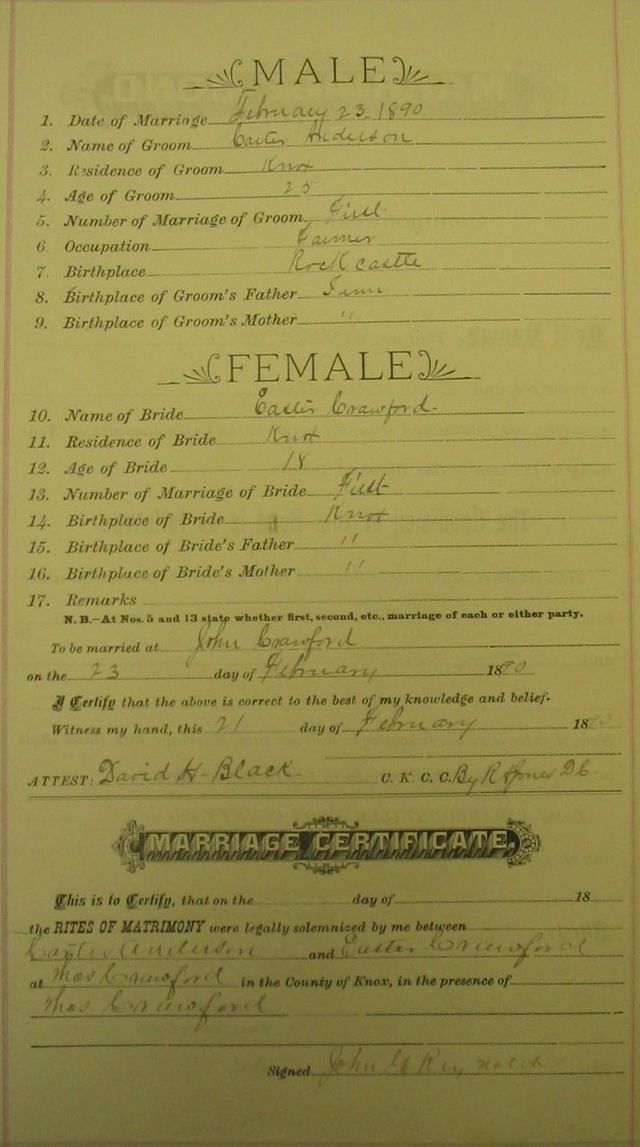 MALE
1. Date of Marriage February 23, 1890
2. Name of Groom Carter Anderson
3. Residence of Groom Knox
4. Age of Groom 25
5. Number of Marriage of Groom First
6. Occupation Farmer
7. Birthplace Rock castle
8. Birthplace of Groom's Father Tenn
9. Birthplace of Groom's Mother "
FEMALE
10. Name of Bride Easter Crawford.
11. Residence of Bride Knox
12. Age of Bride 18
13. Number of Marriage of Bride First
14. Birthplace of Bride Knox
15. Birthplace of Bride's Father "
16. Birthplace of Bride's Mother "
17. Remarks
N. B.—At Nos. 5 and 13 state whether first, second, etc., marriage of each or either party.
To be married at John Crawford
on the 23 day of February 1890
I Certify that the above is correct to the best of my knowledge and belief.
Witness my hand, this 21 day of February 1890
ATTEST: David H. Black. C. K. C. C. By R Jones D C
MARRIAGE CERTIFICATE.
This is to Certify, that on the day of 18
the RITES OF MATRIMONY were legally solemnized by me between
Carter Anderson and Easter Crawford
at Thos Crawford in the County of Knox, in the presence of
Thos Crawford
Signed John G Reynolds